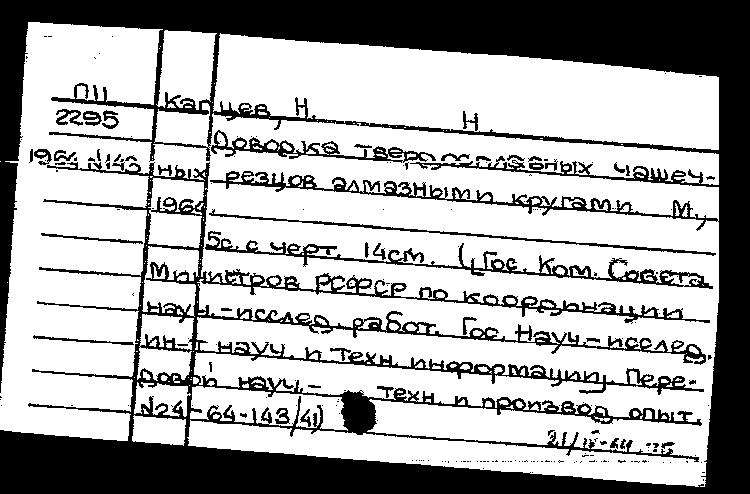 П11 Капцев, Н. Н.
2295
Доводка твердосплавных чашеч-
1964 №143 ных резцов алмазными кругами. М.,
1964.
5с. с черт. 14см. (Гос. Ком. Совета
Министров РСФСР по координации
науч.-исслед. работ. Гос. Науч.-исслед.
ин-т науч. и техн. информации. Пере-
довой науч.- техн. и производ. опыт.
№24-64-143/41)
21/IV-64